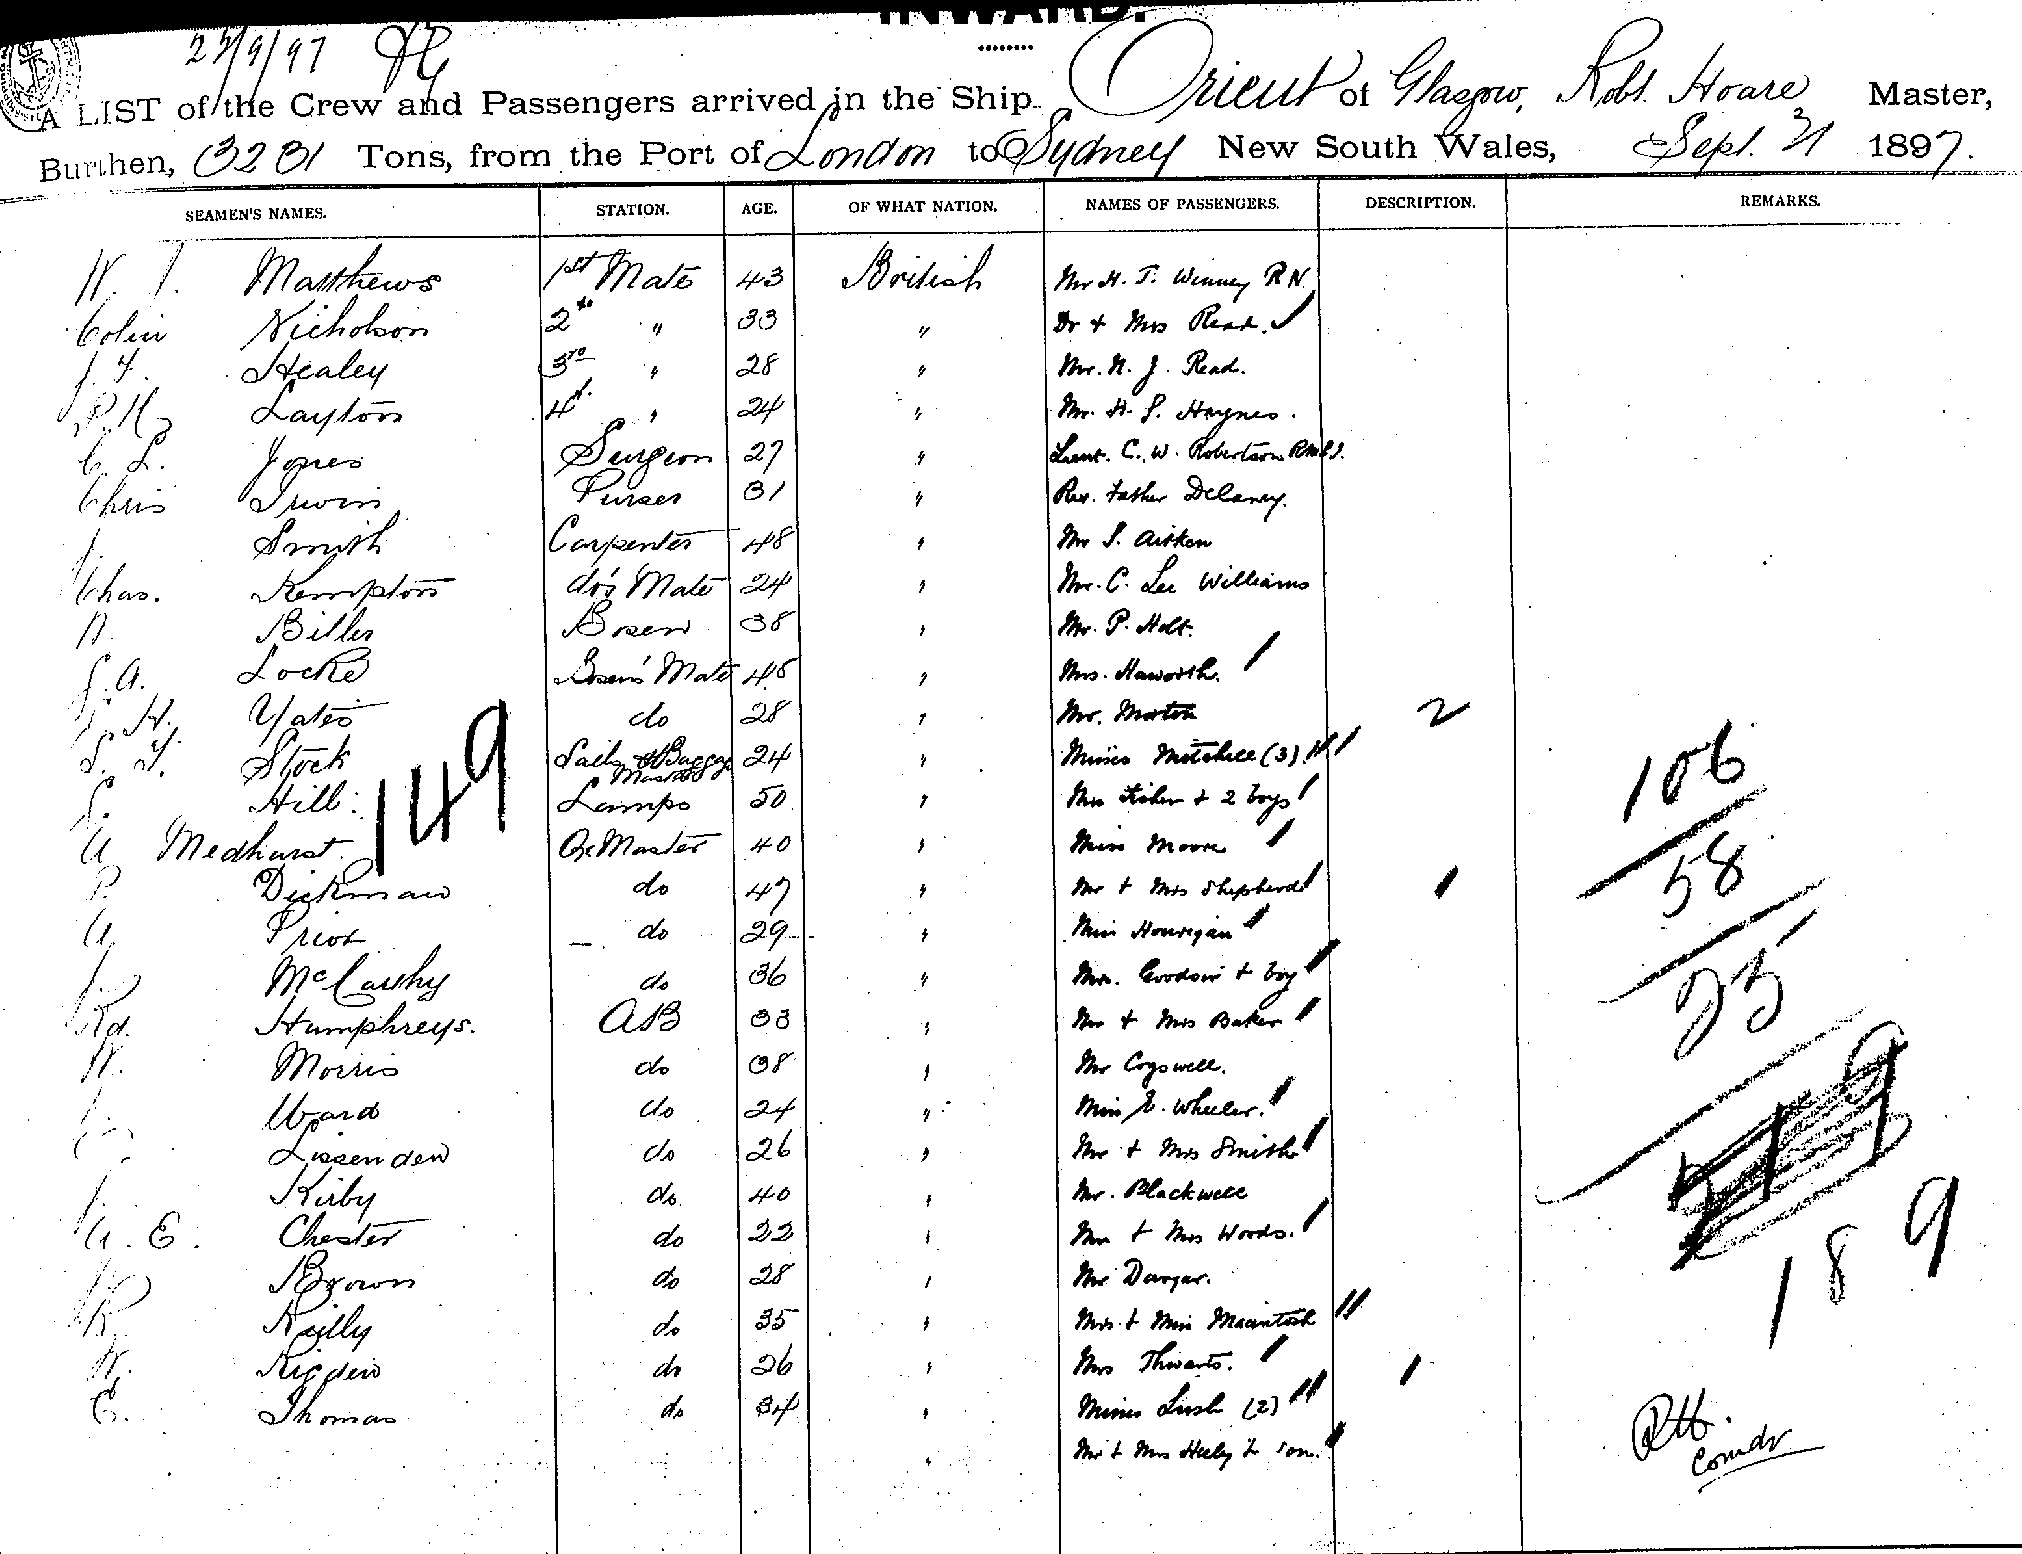 INWARD.
A LIST of the Crew and Passengers arrived in the Ship Orient of Glasgow, Robt. Hoare Master,
Burthen, 3231 Tons, from the Port of London to Sydney New South Wales, Sept. 21 1897.
SEAMEN'S NAMES. STATION. AGE. OF WHAT NATION. NAMES OF PASSENGERS. DESCRIPTION. REMARKS.
Matthews 1st Mate 43 British Mr H. T. Winney RN
Colin Nicholson 2nd " 33 " Dr + Mrs Read.
Healey 3rd " 28 " Mr. N. J. Read.
Layton 4th " 24 " Mr. H. S. Haynes.
C. L. Jones Surgeon 27 " Lieut. C. W. Robertson
Chris Irwin Purser 31 " Rev. Father Delaney.
J. Smith Carpenter 48 " Mr S. Aitken
Chas. Kempton do's Mate 24 " Mr. C. Lee Williams
Biller Bosen 38 " Mr. P. Holt.
Locke Bosen's Mate 45 " Mrs. Haworth.
H. Yates do 28 " Mr. Morton 2
Stock Sails & Baggage Master 24 " Misses Mitchell (3)
Hill Lamps 50 " Mrs Fisher + 2 boys
149
106
A Medhurst Qr Master 40 " Miss Moore
58
P. Dickman do 47 " Mr + Mrs Shepherd 1
A Prior do 29 " Miss Hourigan
J. McCarthy do 36 " Mrs. Goodwin + boy
25
Rd. Humphreys. AB 33 " Mr + Mrs Baker
W. Morris do 38 " Mr Cogswell.
Ward do 24 " Miss E. Wheeler.
Lissenden do 26 " Mr + Mrs Smith
J. Kirby do 40 " Mr. Blackwell
A. E. Chester do 22 " Mr + Mrs Woods.
189
Brown do 28 " Mr Dargar.
R. Reilly do 35 " Mrs + Miss Macintosh
W. Rigden do 26 " Mrs Thwaits. 1
E. Thomas do 34 " Misses Lush (2)
" Mr + Mrs Heeley + son.
RH.
Comdr